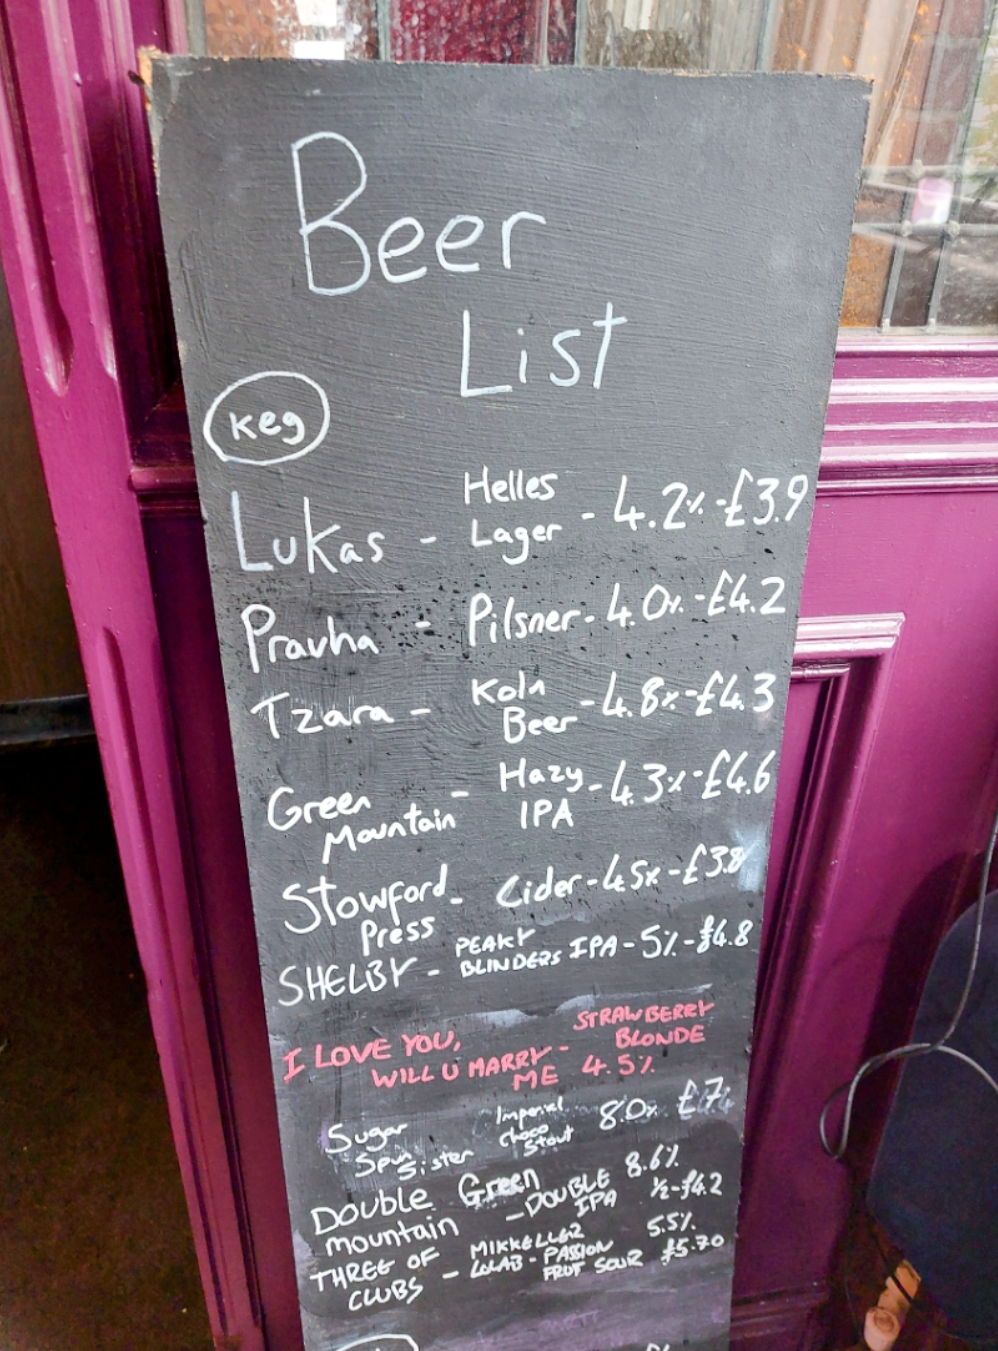 Beer
List
Keg
Lukas - Helles Lager - 4.2% - £3.9
Pravha - Pilsner - 4.0% - £4.2
Tzara - Koln Beer - 4.8% - £4.3
Green Mountain - Hazy IPA - 4.3% - £4.6
Stowford Press - Cider - 4.5% - £3.8
SHELBY - PEAKY BLINDERS IPA - 5% - £4.8
I LOVE YOU, WILL U MARRY ME - STRAWBERRY BLONDE 4.5%
Sugar Spun Sister Imperial Choco Stout 8.0% £7
DOUBLE Green mountain - DOUBLE IPA 8.6% ½-£4.2
THREE OF CLUBS - MIKKELLER PASSION FRUT SOUR 5.5% £5.70